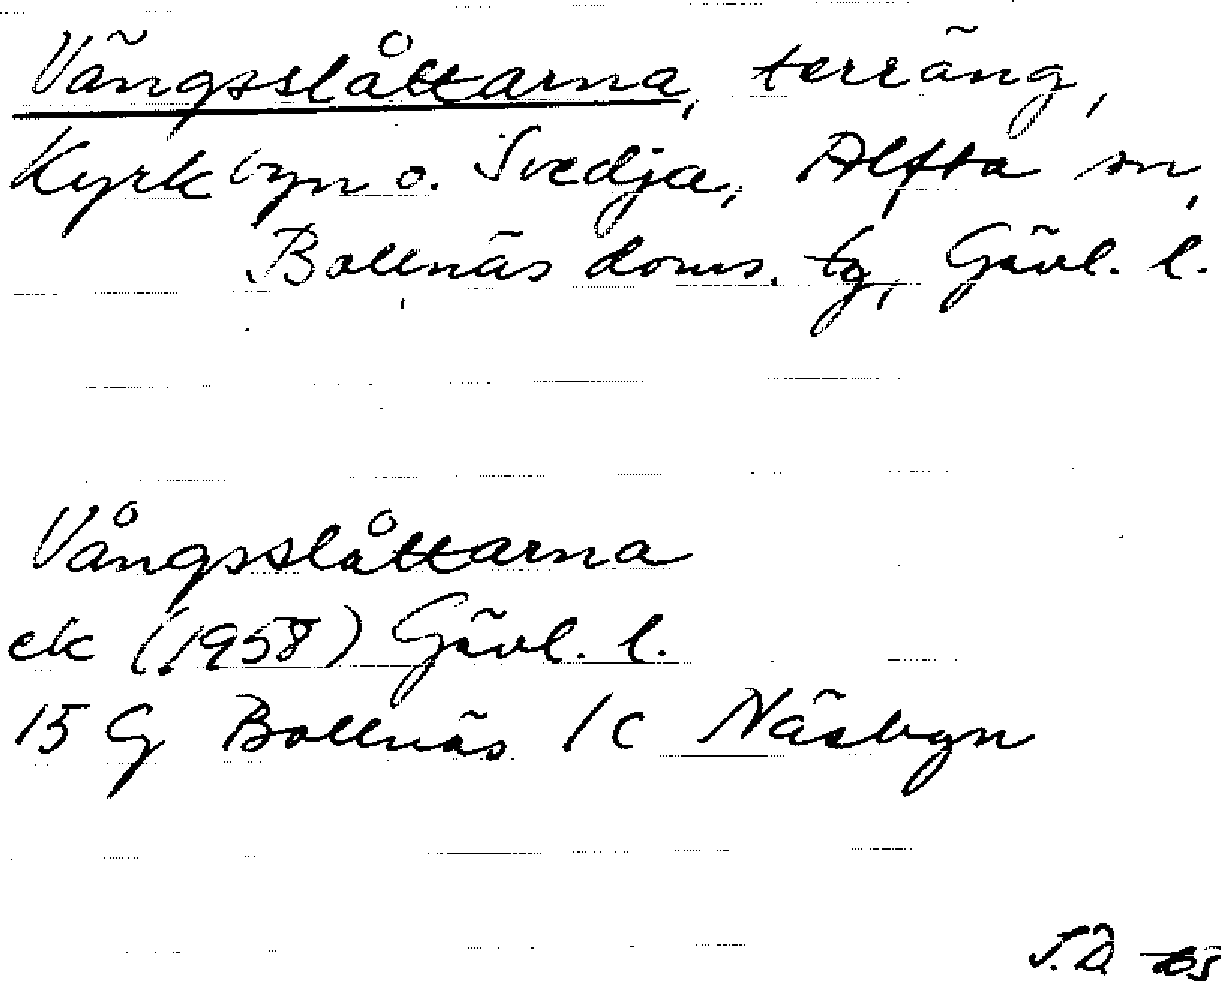 Vängsslåttarna, terräng,
Kyrkbyn o. Svedja, Alfta sn,
Bollnäs doms. tg, Gävl. l.
Vångsslåttarna
ek (1958) Gävl. l.
15 G Bollnäs 1c Näsbyn